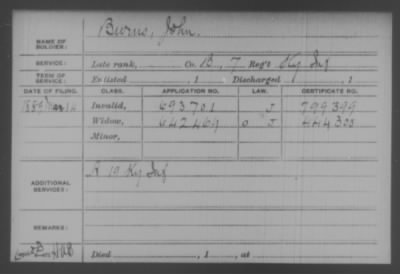 NAME OF SOLDIER: Burns, John.
SERVICE: Late rank, Co. B, 7 Reg't Ky Inf
TERM OF SERVICE: Enlisted , 1 Discharged , 1
DATE OF FILING. CLASS. APPLICATION NO. LAW. CERTIFICATE NO.
1889 Mar 14 Invalid, 693.701 J 799399
Widow, 642469 J 444300
Minor,
ADDITIONAL SERVICES: A 19 Ky Inf
REMARKS:
Died , 1 , at